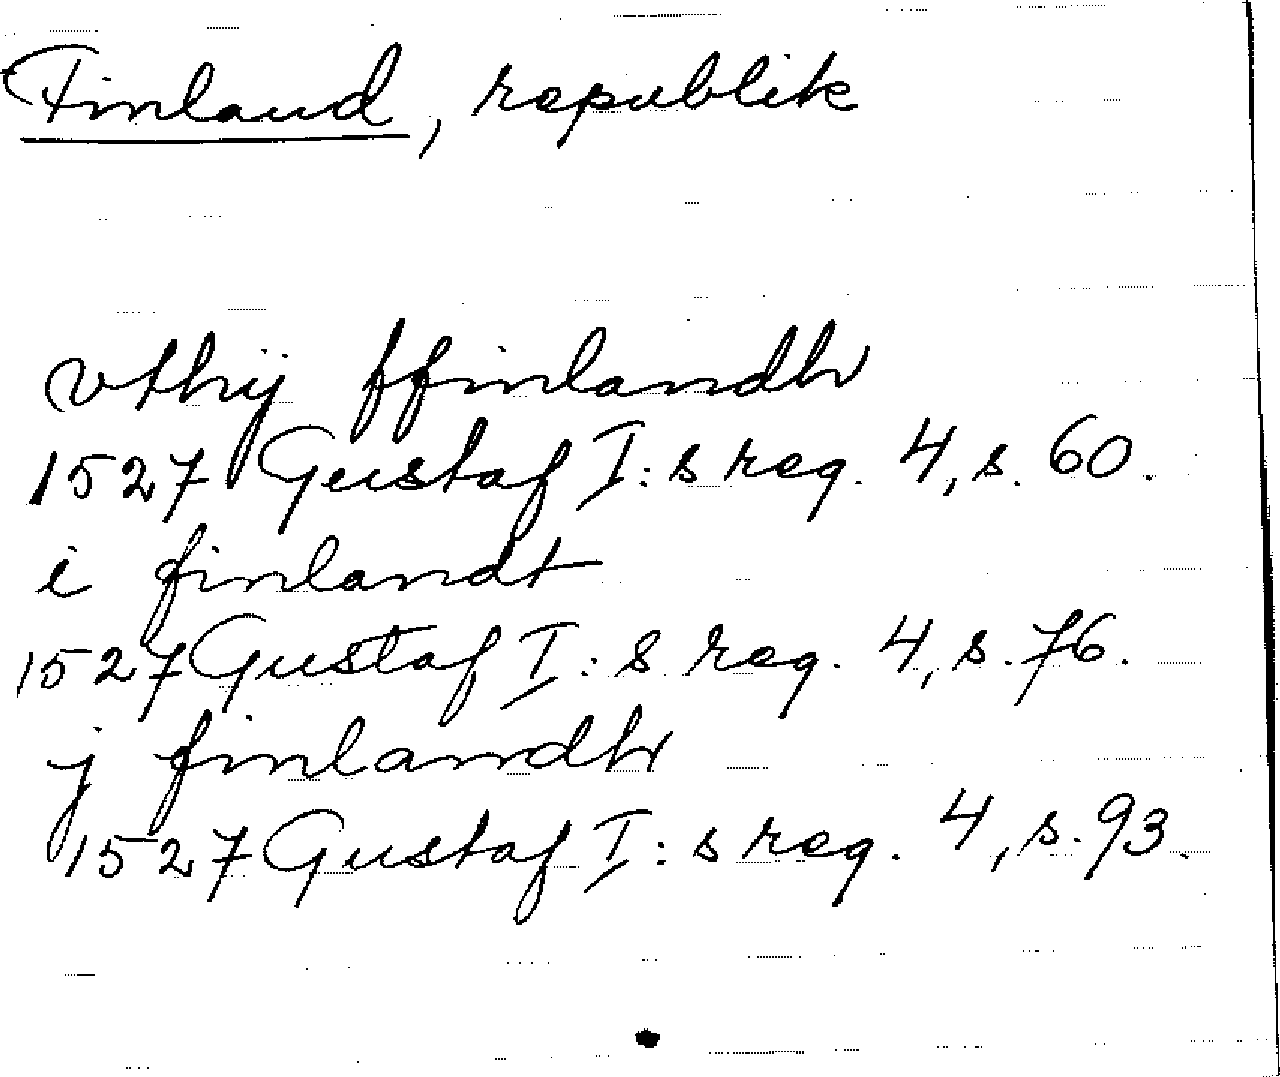 Finland, republik
vthij ffinlandh
1527 Gustaf I:s reg. 4, s. 60.
i finlandt
1527 Gustaf I:s reg. 4, s. 76.
j finlandh
1527 Gustaf I:s reg. 4, s. 93.